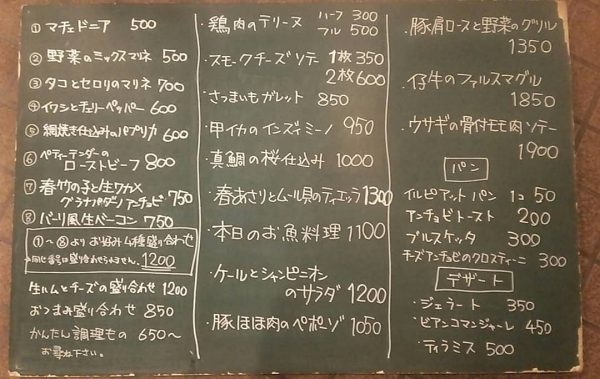 ① マチェドニア 500
② 野菜のミックスマリネ 500
③ タコとセロリのマリネ 700
④ イワシとチェリーペッパー 600
⑤ 網焼き仕込みのパプリカ 600
⑥ ペティーテンダーの
ローストビーフ 800
⑦ 春竹の子と生ワカメ
グラナパダーノアンチョビ 750
⑧ バーリ風生ベーコン 750
①〜⑧よりお好み4種盛り合わせ
同じ番号は盛り合わせられません。 1200
生ハムとチーズの盛り合わせ 1200
おつまみ盛り合わせ 850
かんたん調理もの 650〜
お尋ね下さい。
・鶏肉のテリーヌ ハーフ 300
フル 500
・スモークチーズソテー 1枚 350
2枚 600
・さつまいもガレット 850
・甲イカのインズィミーノ 950
・真鯛の桜仕込み 1000
・春あさりとムール貝のティエッラ 1300
・本日のお魚料理 1100
・ケールとシャンピニオン
のサラダ 1200
・豚ほほ肉のペポーゾ 1050
・豚肩ロースと野菜のグリル
1350
・仔牛のファルスマグル
1850
・ウサギの骨付モモ肉ソテー
1900
パン
イルピアット パン 1コ 50
アンチョビトースト 200
ブルスケッタ 300
チーズアンチョビのクロスティーニ 300
デザート
・ジェラート 350
・ビアンコマンジャーレ 450
・ティラミス 500